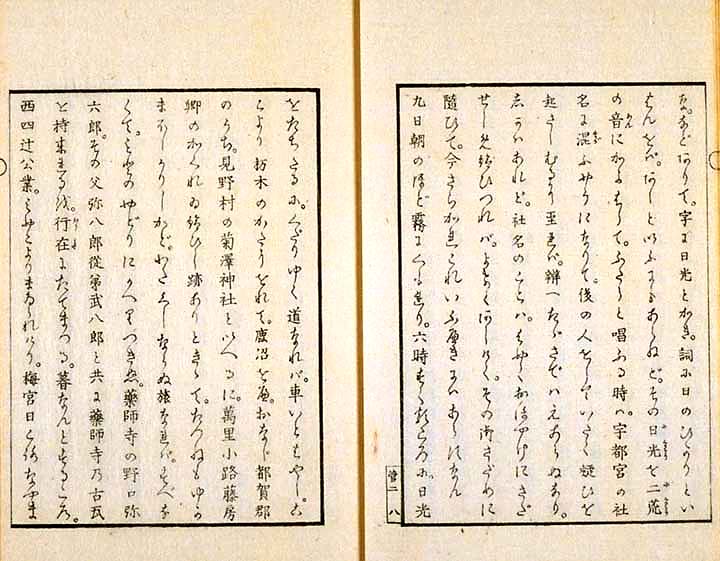 字に日光とかき。詞に日のひかりとい
はんをば。あしといふにはあらねど。その日光を二荒
の音にかよはして。ふたらと唱ふる時は。宇都宮の社
名に混ふやうになりて。後の人をして いたく疑ひを
起さしむるに至れば。辨へたゞさではえあらぬなり。
しかはあれど。社名のことは。はやくおほやけにさだ
せしめ給ひつれば。 その御さだめに
隨ひて。今さら いふべきにはあらずなん
九日朝のほど霧にくもれり。六時すぐるころに。日光
二 八
をたちさるに。くだりゆく道なれば。車いとはやし。こ
ゝより枋木のかたにをれて。鹿沼を おなじ都賀郡
のうち。見野村の菊澤神社といへるに。萬里小路藤房
卿のかくれゐ給ひし跡ありときゝて。たづねもゆか
まほしかりしかど。わたくしならぬ旅なれば。すべな
くて。もとのやどりにかへりつきぬ。藥師寺の野口弥
六郎。その父弥八郎從弟武八郎と共に藥師寺乃古瓦
を持来 行在にたてまつる。暮なんとするころ。
西四辻公業。みやこよりまゐられけり。梅宮日